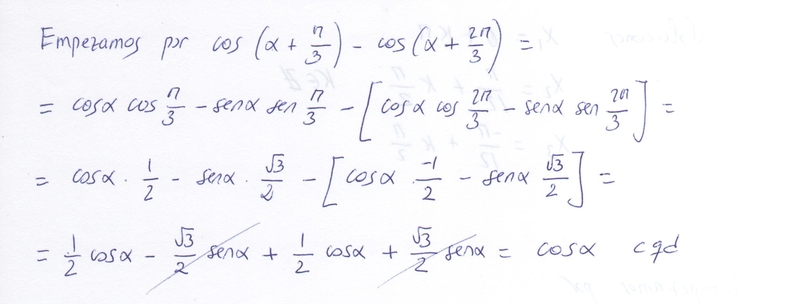 Empezamos por cos (α + π/3) - cos (α + 2π/3) =
= cosα cos π/3 - senα sen π/3 - [cosα cos 2π/3 - senα sen 2π/3] =
= cosα · 1/2 - senα · √3/2 - [cosα · -1/2 - senα √3/2] =
= 1/2 cosα - √3/2 senα + 1/2 cosα + √3/2 senα = cosα cqd